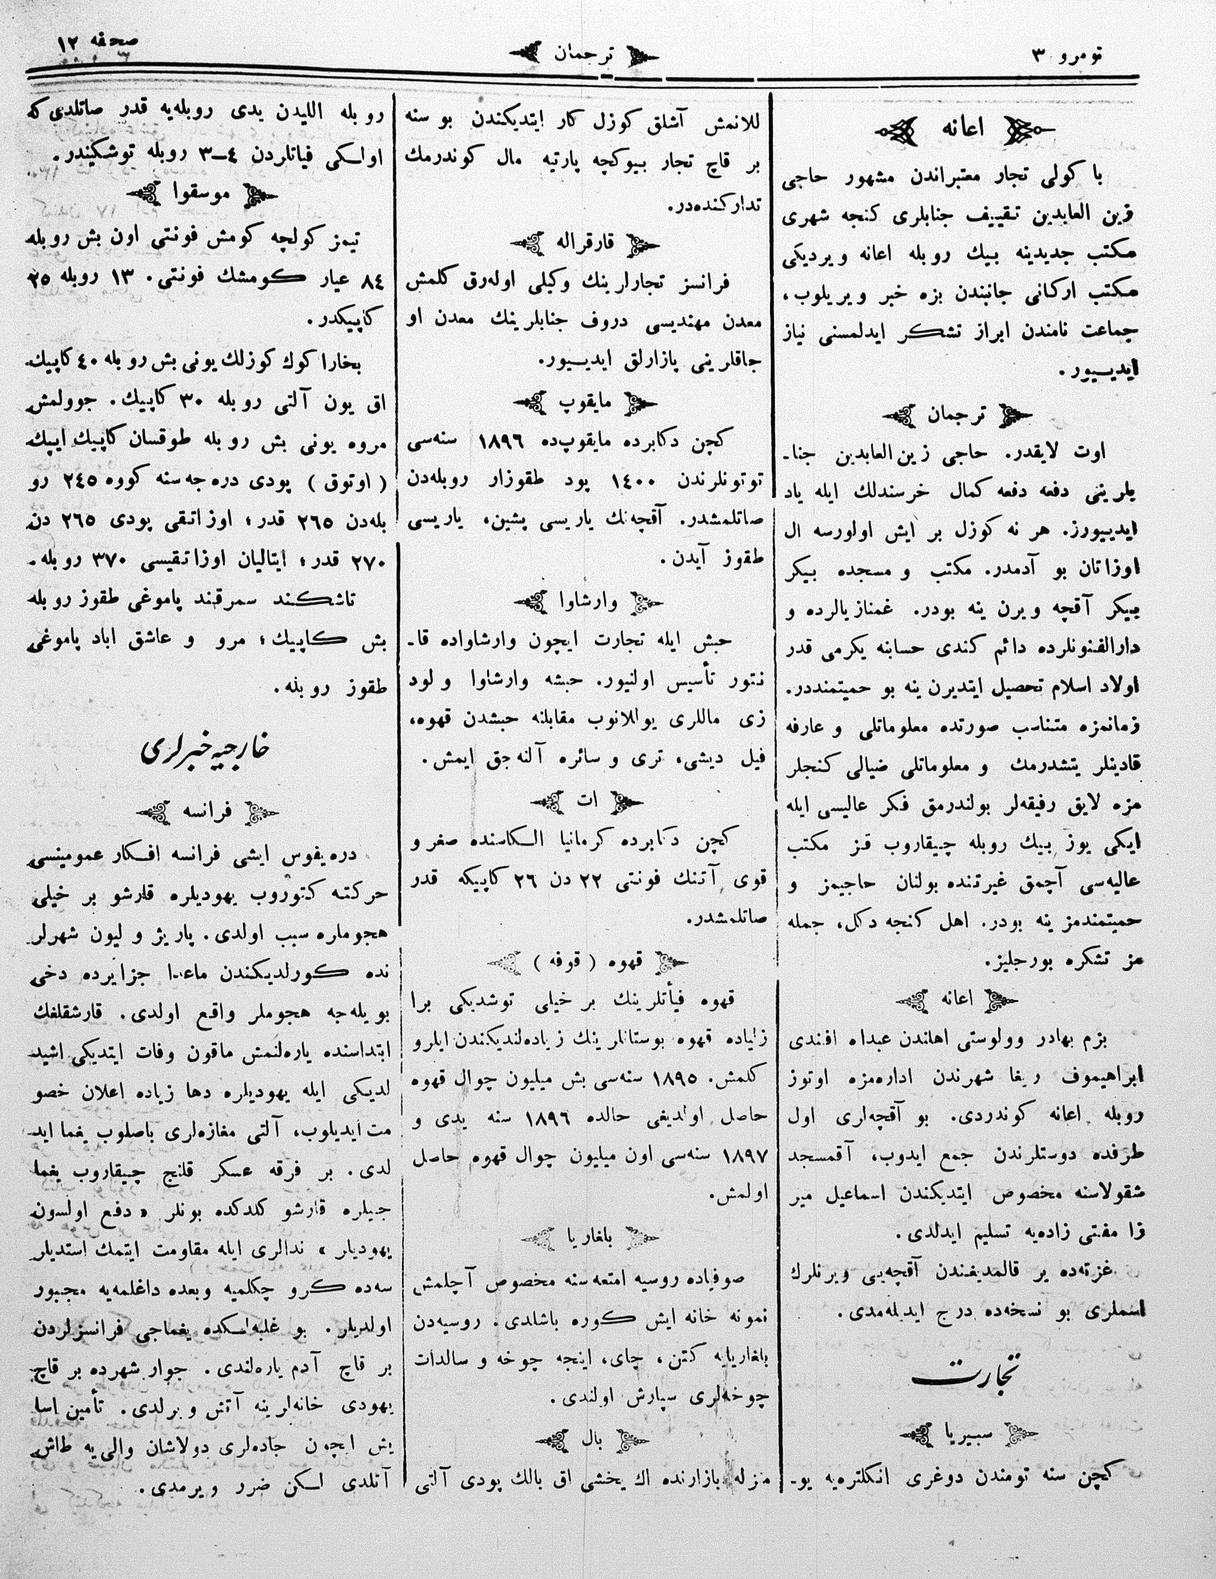 نومرو ٣
ترجمان
صحفه ١٢
اعانه
باكولى تجار معتبراندن مشهور حاجى
زين العابدين تقييف جنابلرى كنجه شهرى
مكتب جديدينه بيك روبله اعانه ويرديكى
مكتب اركانى جانبندن بزه خبر ويريلوب،
جماعت نامندن ابراز تشكر ايدلمسنى نياز
ايديیور.
ترجمان
اوت لايقدر. حاجى زين العابدين جنا-
بلرينى دفعه دفعه كمال خرسندلك ايله ياد
ايديیورز. هر نه كوزل بر ايش اولورسه ال
اوزاتان بو آدمدر. مكتب و مسجده بيكر
بيكر آقچه ويرن ينه بودر. غمنازيالرده و
دارالفنونلرده دائم كندى حسابنه يكرمى قدر
اولاد اسلام تحصيل ايتديرن ينه بو حميتمنددر.
زمانمزه متناسب صورتده معلوماتلى و عارفه
قادينلر يتشدرمك و معلوماتلى ضيالى كنجلر
مزه لايق رفيقه‌لر بولندرمق فكر عاليسى ايله
ايكى يوز بيك روبله چيقاروب قز مكتب
عاليه‌سى آچمق غيرتنده بولنان حاجيمز و
حميتمندمز ينه بودر. اهل كنجه دكل، جمله
مز تشكره بورجليز.
اعانه
بزم بهادر وولوستى اهالندن عبداه افندى
ابراهيموف ريغا شهرندن اداره‌مزه اوتوز
روبله اعانه كوندردى. بو آقچه‌لرى اول
طرفده دوستلرندن جمع ايدوب، آقمسجد
شقولاسنه مخصوص ايتديكندن اسماعيل مير
زا مفتى زاده‌يه تسليم ايدلدى.
غزته‌ده ير قالمديغندن آقچه‌يى ويرنلرك
اسملرى بو نسخه‌ده درج ايديله‌مدى.
تجارت
سبيريا
كچن سنه تومندن دوغرى انكلتره‌يه يو-
للانمش آشلق كوزل كار ايتديكندن بو سنه
بر قاچ تجار بيوكچه پارتيه مال كوندرمك
تداركنده‌در.
قارقراله
فرانسز تجارلرينك وكيلى اوله‌رق كلمش
معدن مهنديسى دروف جنابلرينك معدن او
جاقلرينى پازارلق ايديیور.
مايقوپ
كچن دكابرده مايقوپ‌ده ١٨٩٦ سنه‌سى
توتونلرندن ١٤٠٠ پود طقوزار روبله‌دن
صاتلمشدر. آقچه‌نك ياريسى پشين، ياريسى
طقوز آيدن.
وارشاوا
حبش ايله تجارت ايچون وارشاواده قا-
نتور تأسيس اولنيور. حبشه وارشاوا و لود
زى ماللرى يوللانوب مقابلنه حبشدن قهوه،
فيل ديشى، ترى و سائره آلنه‌جق ايمش.
ات
كچن دكابرده كرمانيا الكاسنده صغر و
قوى آتنك فونتى ٢٢ دن ٢٦ كاپيكه قدر
صاتلمشدر.
قهوه (قوفه)
قهوه فيأتلرينك بر خيلى توشديكى برا
زلياده قهوه بوستانلرينك زياده‌لنديكندن ايلرو
كلمش. ١٨٩٥ سنه‌سى بش ميليون چوال قهوه
حاصل اولديغى حالده ١٨٩٦ سنه يدى و
١٨٩٧ سنه‌سى اون ميليون چوال قهوه حاصل
اولمش.
بلغاريا
صوفياده روسيه امتعه‌سنه مخصوص آچلمش
نمونه خانه ايش كوره باشلدى. روسيه‌دن
بلغاريايه كتن، چاى، اينجه چوخه و سالدات
چوخه‌لرى سپارش اولندى.
بال
منزله بازارنده اك يخشى اق بالك پودى آلتى
روبله الليدن يدى روبله‌يه قدر صاتلدى كه
اولكى فياتلردن ٤-٣ روبله توشكيندر.
موسقوا
تيمز كولچه كومش فونتى اون بش روبله
٨٤ عيار كومشك فونتى. ١٣ روبله ٢٥
كاپيكدر.
بخارا كوك كوزلك يونى بش روبله ٤٠ كاپيك
اق يون آلتى روبله ٣٠ كاپيك. جوولمش
مروه يونى بش روبله طوقسان كاپيك ايپك
(اوتوق) پودى دره‌جه‌سنه كوره ٢٤٥ رو
بله‌دن ٢٦٥ قدر؛ اوزاتقى پودى ٢٦٥ دن
٢٧٠ قدر؛ ايتاليان اوزاتقيسى ٣٧٠ روبله.
تاشكند سمرقند پاموغى طقوز روبله
بش كاپيك؛ مرو و عاشق اباد پاموغى
طقوز روبله.
خارجيه خبرلرى
فرانسه
دره‌يفوس ايشى فرانسه افكار عمومينسى
حركته كتوروب يهوديلره قارشو بر خيلى
هجوماره سبب اولدى. پاريژ و ليون شهرلر
نده كورلديكندن ماعدا جزايرده دخى
بويله‌جه هجوملر واقع اولدى. قارشقلقك
ابتداسنده ياره‌لنمش ماقون وفات ايتديكى اشيد
لديكى ايله يهوديلره دها زياده اعلان خصو
مت ايديلوب، آلتى مغازه‌لرى باصلوب يغما ايد
لدى. بر فرقه عسكر قلنج چيقاروب يغما
جيلره قارشو كلدكده بونلر «دفع اولسون
يهوديلر» ندالرى ايله مقاومت ايتمك استديلر
سه‌ده كرو چكلميه وبعده داغلمه‌يه مجبور
اولديلر. بو غلبه‌لكده يغماجى فرانسزلردن
بر قاچ آدم ياره‌لندى. جوار شهرده بر قاچ
يهودى خانه‌لرينه آتش ويرلدى. تأمين اسا
يش ايچون جاده‌لرى دولاشان والى‌يه طاش
آتلدى لكن ضرر ويرمدى.